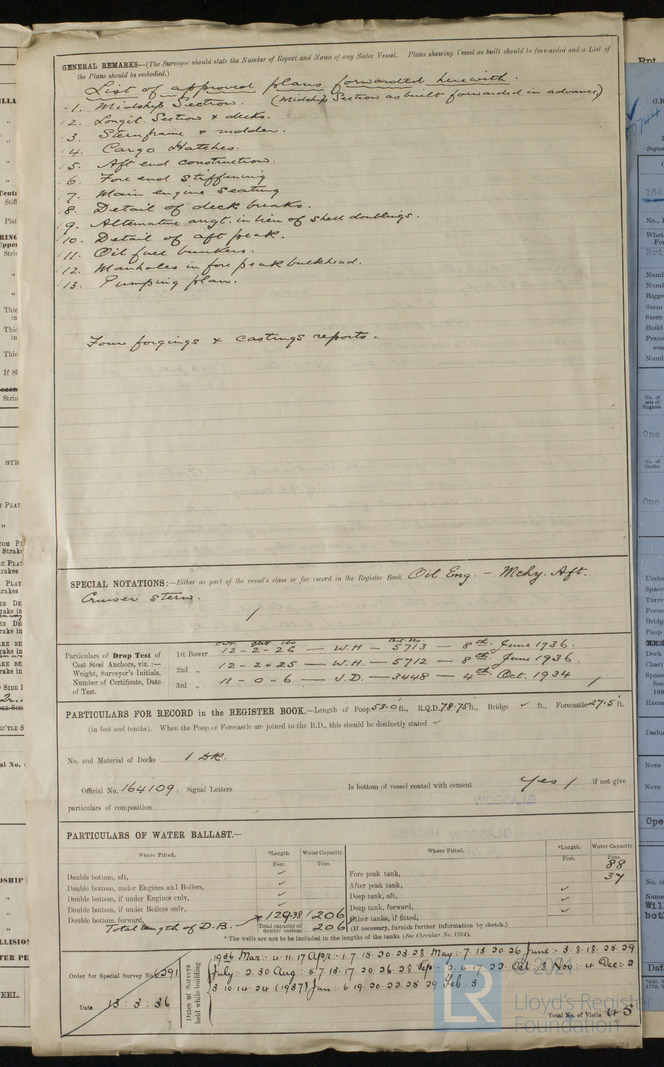 GENERAL REMARKS—(The Surveyor should state the Number of Report and Name of any Sister Vessel. Plans showing Vessel as built should be forwarded and a List of
the Plans should be embodied.)
List of approved plans forwarded herewith.
1. Midship Section. (Midship Section as built forwarded in advance)
2. Longit. Section & decks.
3. Sternframe & rudder.
4. Cargo Hatches.
5. Aft end construction.
6. Fore end stiffening
7. Main engine seating
8. Detail of deck breaks.
9. Alternative angt. in lieu of shell doublings.
10. Detail of aft peak.
11. Oil fuel bunkers.
12. Manholes in fore peak bulkhead.
13. Pumping plan.
Four forgings & castings reports.
SPECIAL NOTATIONS:—Either as part of the vessel's class or for record in the Register Book Oil Eng. – Mchy. Aft.
Cruiser stern.
Particulars of Drop Test of
Cast Steel Anchors, viz.:—
Weight, Surveyor's Initials,
Number of Certificate, Date
of Test.
1st Bower 12-2-26 — W.H — 5713 — 8th June 1936.
2nd „ 12-2-25 — W.H. — 5712 — 8th June 1936.
3rd „ 11-0-6 — J.D. — 3448 — 4th Oct. 1934
PARTICULARS FOR RECORD in the REGISTER BOOK.—Length of Poop 53.0 ft., R.Q.D. 78.75 ft., Bridge ✓ ft., Forecastle 27.5 ft.
(in feet and tenths). When the Poop or Forecastle are joined to the B.D., this should be distinctly stated ✓
No. and Material of Decks 1 DK.
Official No. 164109 Signal Letters Is bottom of vessel coated with cement Yes if not give
particulars of composition
PARTICULARS OF WATER BALLAST.—
Where Fitted. *Length. Water Capacity. Where Fitted. *Length. Water Capacity.
Feet. Tons. Feet. Tons.
Double bottom, aft, ✓ Fore peak tank, 88
Double bottom, under Engines and Boilers, ✓ After peak tank, 37
Double bottom, if under Engines only, ✓ Deep tank, aft, ✓
Double bottom, if under Boilers only, ✓ Deep tank, forward, ✓
Double bottom, forward, 129.38 206 Other tanks, if fitted, ✓
Total length of D.B. Total capacity of double bottom 206 (If necessary, furnish further information by sketch.)
*The wells are not to be included in the lengths of the tanks (See Circular No. 1284).
Order for Special Survey No. 6291
Date 13:3:36
Dates of Surveys held while building
1936 Mar: 4.11.17 Apr: 1.7.15.20.23.28 May: 7.13.20.26 June: 3.8.18.25.29
July: 2.30 Aug: 5.7.13.17.20.26.28 Sep: 2.4.17.22 Oct 8 Nov: 4 Dec: 2
3.10.14.24 (1937) Jan: 6.19.20.22.25.29 Feb: 3
Total No. of Visits 45
© 2021
LR
Lloyd's Register
Foundation